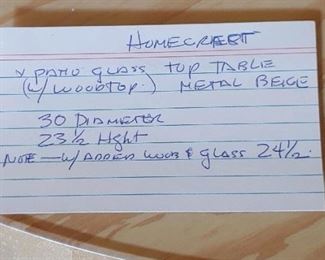 HOMECREST
x PATIO GLASS TOP TABLE
(W/ WOODTOP.) METAL BEIGE
30 DIAMETER
23 1/2 HGHT
NOTE — W/ ADDED WOOD & GLASS 24 1/2.